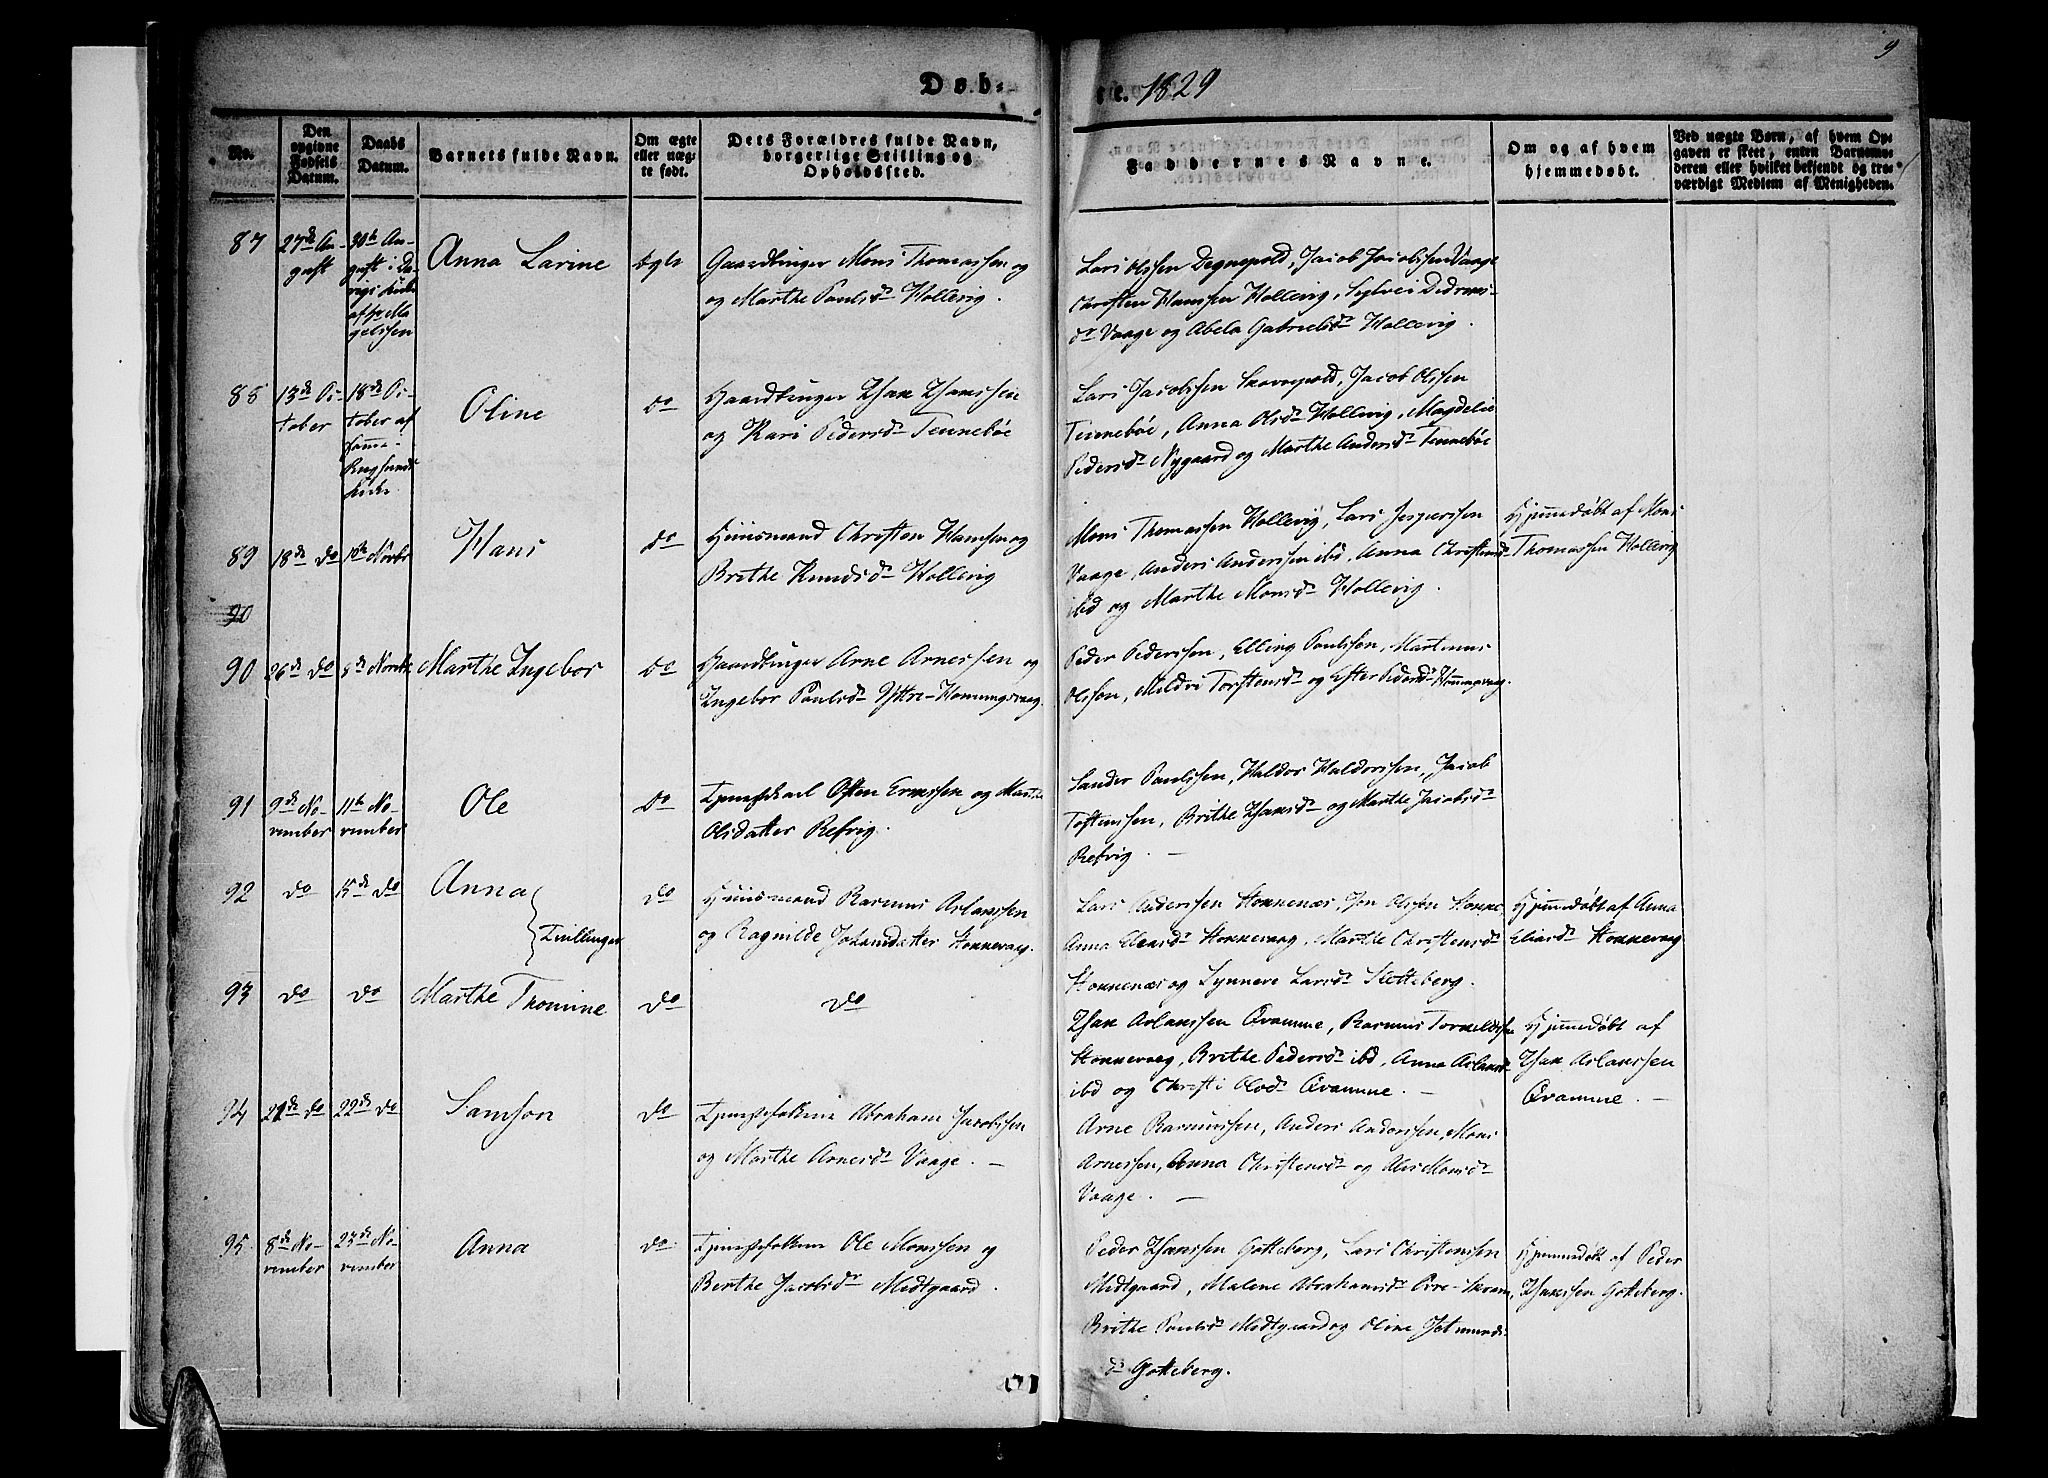 9
Døb-
te. 1829
No.
Den opgivne Fødsels Datum.
Daabs Datum.
Barnets fulde Navn.
Om ægte eller uægte født.
Dets Forældres fulde Navn, borgerlige Stilling og Opholdssted.
Faddernes Navne.
Om og af hvem hjemmedøbt.
Ved uægte Børn, af hvem Opgaven er skeet, enten Barnemoderen eller hvilket bekjendt og troværdigt Medlem af Menigheden.
87
27de Au-
gust
30te Au-
gust i Da-
vigs Kirke
af Hr Ma
gelssen
Anna Larine
Ægte
Gaardbruger Mons Thomassen og
og Marthe Paulsdr Hollevig.
Lars Olssen Degnepold, Jacob Jacobssen Vaage
Christen Hanssen Hollevig, Sylvei Didrics-
dr Vaage og Abela Gabrielsdr Hollevig.
88
13de Oc-
tober
18de Oc-
tober af
Kirke
Oline
do
Gaardbruger Isak Isakssen
og Kari Pedersdr Tennebøe
Lars Jacobssen Skovepold, Jacob Olssen
Tennebøe, Anna Olsdr Hollevig, Magdeli
Pedersdr Nygaard og Marthe Andersdr Tennebøe
89
18de do
1ste Novbr
Hans
do
Huusmand Christen Hanssen og
Brithe Knudsdr Hollevig
Mons Thomassen Hollevig, Lars Jespersen
Vaage, Anders Anderssen ibd, Anna Christensdr
ibd og Marthe Monsdr Hollevig.
Hjemmedøbt af Mons
Thomassen Hollevig
90
90
26de do
8de Novbr
Marthe Ingebor
do
Gaardbruger Arne Arnessen og
Ingebor Paulsdr Yttre-Honningsvaag.
Peder Pederssen, Elling Paulssen, Martinus
Olsson, Mildri Torstensdr og Ester Pedersdr Honningsvaag.
91
9de No-
vember
11te No-
vember
Ole
do
Tjenestekarl Osten Ernssen og Marthe
Olsdatter Refvig.
Sander Paulssen, Haldor Haldorssen, Jacob
Tostenssen, Brithe Isaksdr og Marthe Jacobsdr
Refvig. —
92
do
15de do
Anna
Tvillinger
do
Huusmand Rasmus Aslakssen
og Ragnilde Johansdatter Hokkevaag.
Lars Anderssen Hokkenæs, Jon Olssen Hokke,
Anna Eliasdr Hokkevaag, Marthe Christensdr
Hokkenæs og Synneve Larsdr Sletteberg.
Hjemmedøbt af Anna
Eliasdr Hokkevaag
93
do
do
Marthe Thomine
do
do
Isak Aslakssen Qvamme, Rasmus Torkeldssen
Hokkevaag, Brithe Pedersdr ibd, Anna Aslaksdr
ibd og Christi Olsdr Qvamme. —
Hjemmedøbt af
Isak Aslakssen
Qvamme. —
94
21de do
22de do
Samson
do
Tjenestefolkene Abraham Jacobssen
og Marthe Arnesdr Vaage. —
Arne Rasmussen, Anders Anderssen, Mons
Arnessen, Anna Christensdr og Alis Monsdr
Vaage. —
95
8de No-
vember
23de No-
vember
Anna
do
Tjenestefolkene Ole Monssen og
Berthe Jacobsdr Midtgaard.
Peder Isakssen Gotteberg, Lars Christenssen
Midtgaard, Malene Abrahamsdr Øvre-Skram,
Brithe Paulsdr Midtgaard og Oline Jetmunds-
dr Gotteberg.
Hjemmedøbt af Peder
Isakssen Gotteberg.